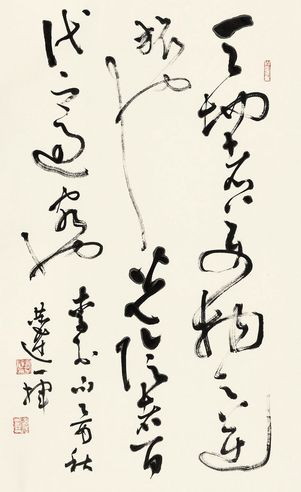 天地者万物之逆
旅也光陰者百
代之過客也
秋
一揮